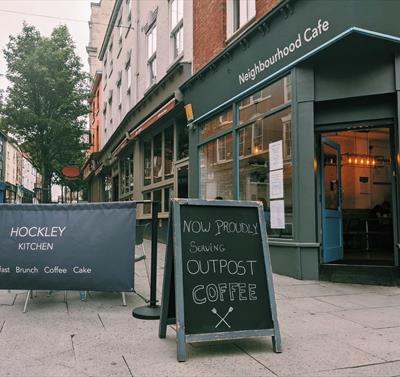 Neighbourhood Cafe
HOCKLEY
KITCHEN
fast Brunch Coffee Cake
NOW PROUDLY
SERVING
OUTPOST
COFFEE